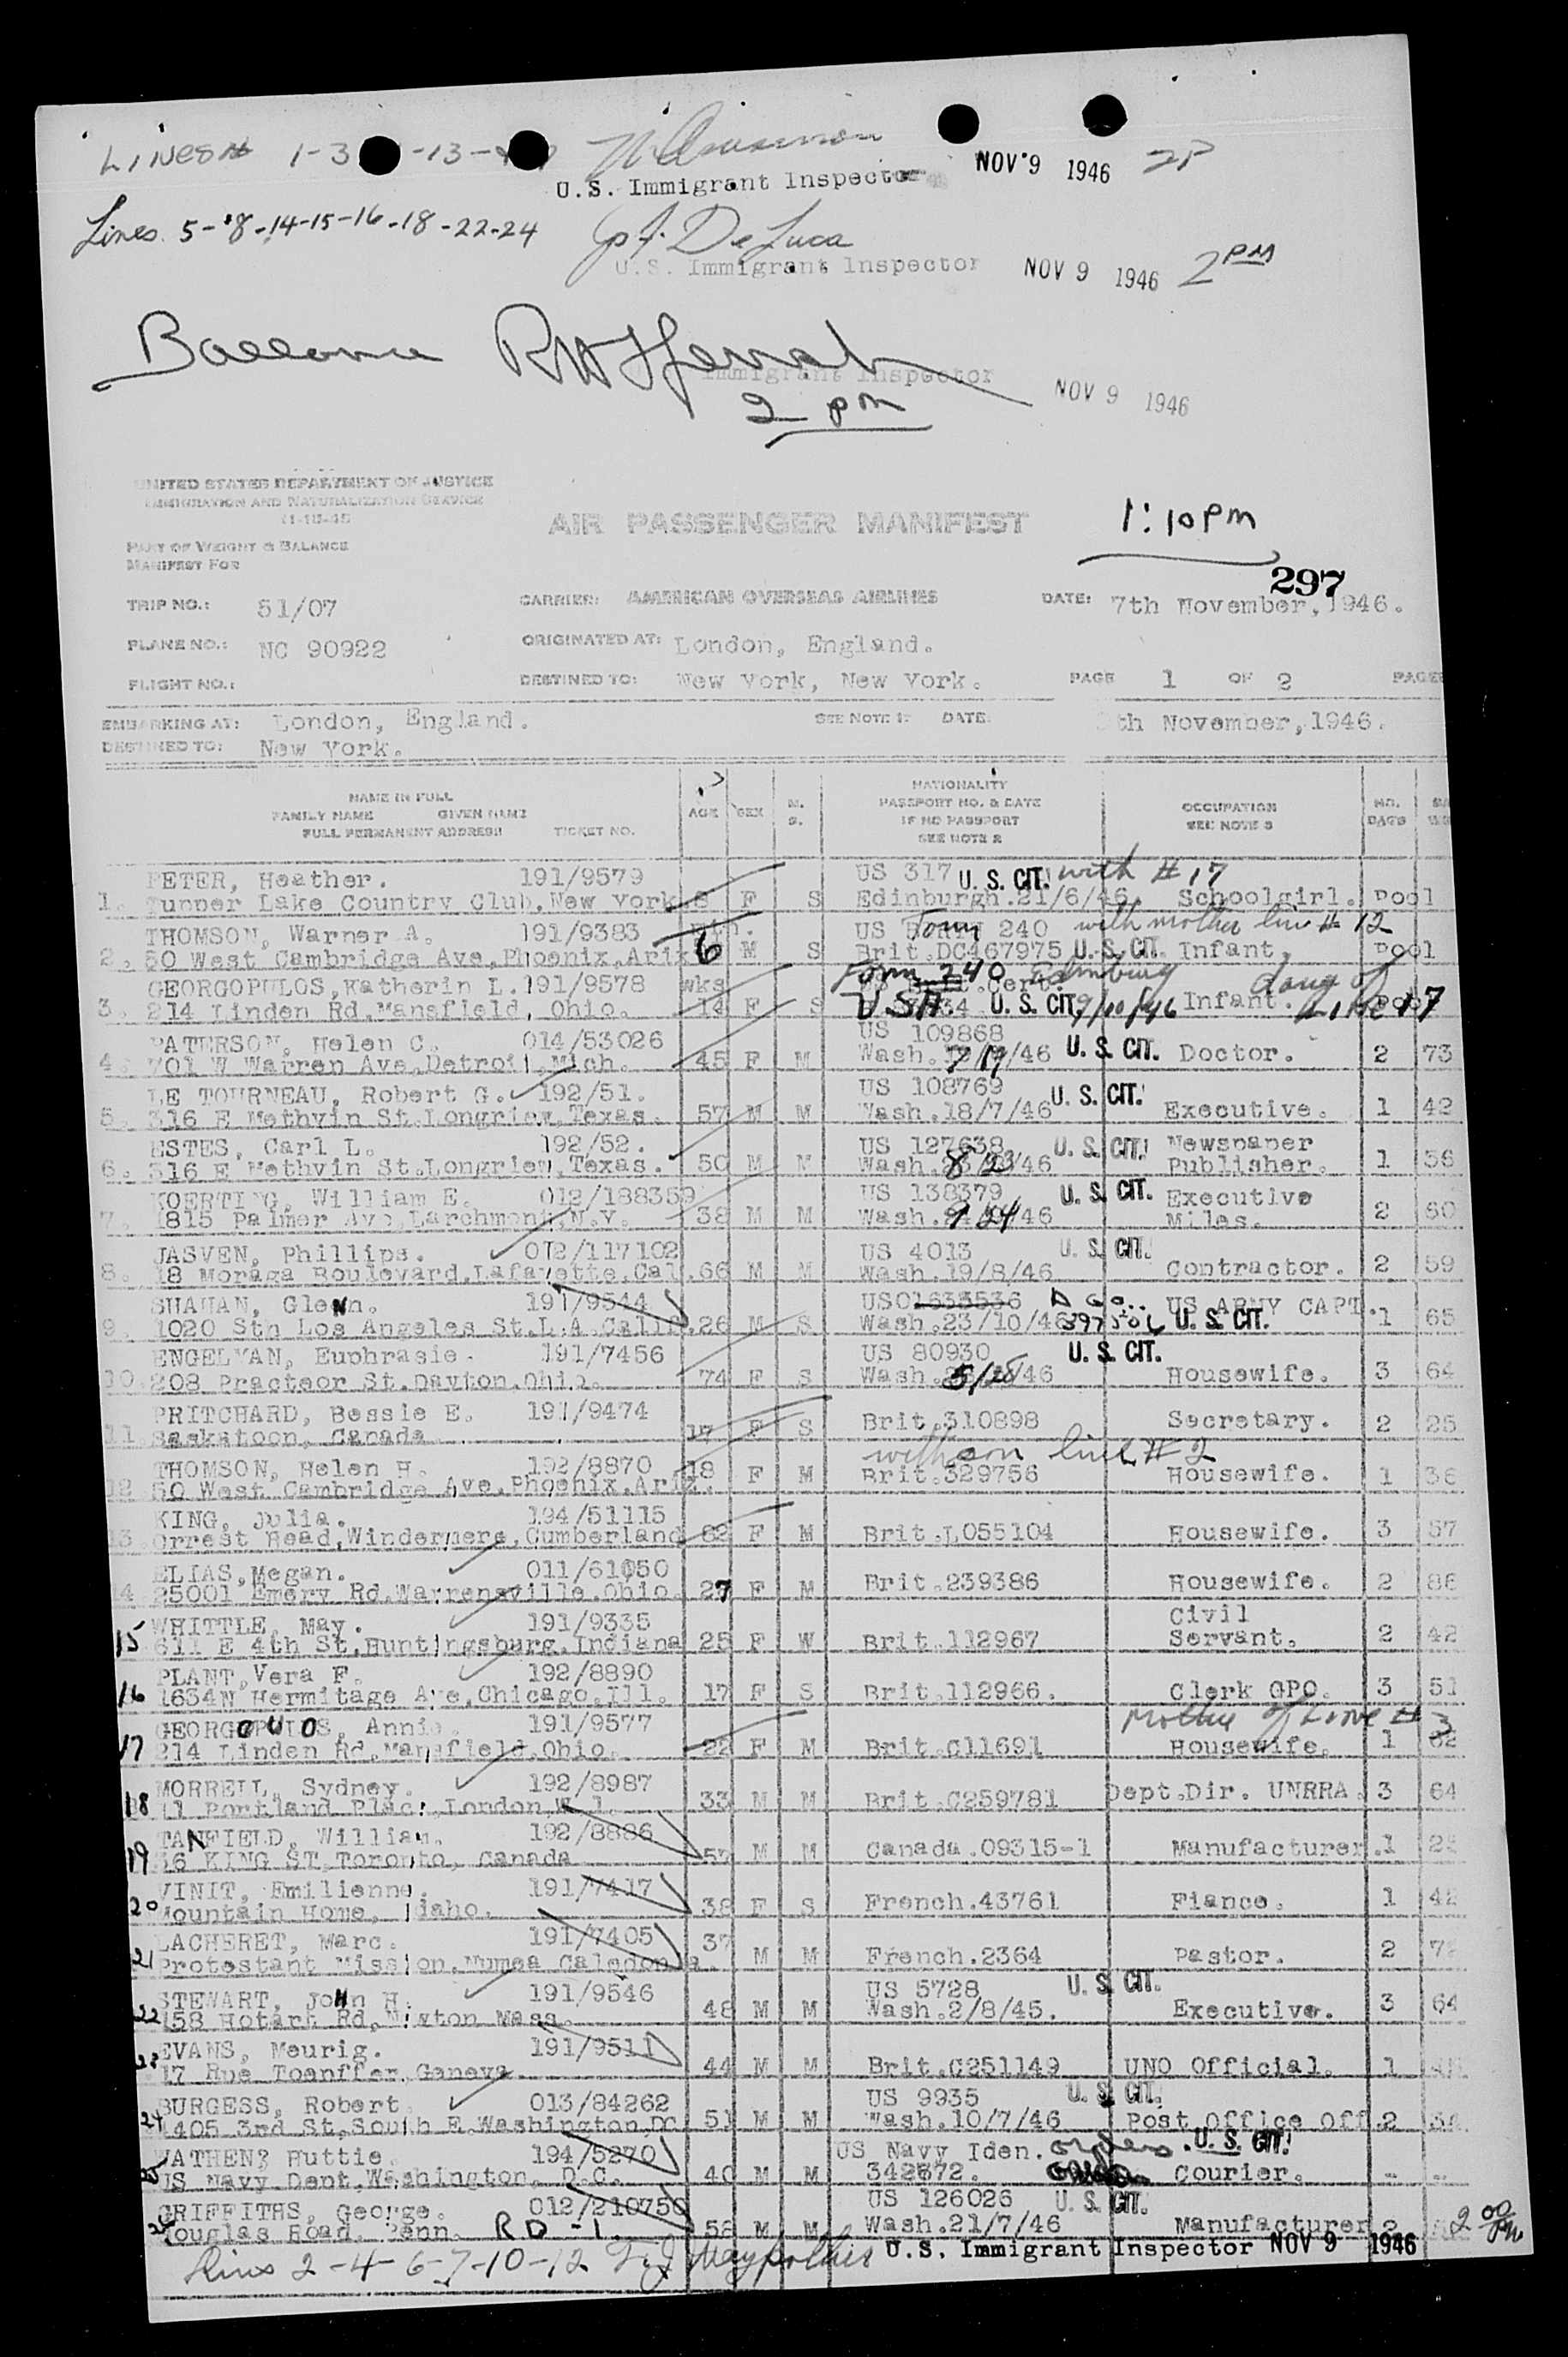 Lines 1-3 -13-
U.S. Immigrant Inspector NOV 9 1946 2P
Lines 5-8-14-15-16-18-22-24 De Luca
U.S. Immigrant Inspector NOV 9 1946 2 PM
Balance
Immigrant Inspector NOV 9 1946
2 pm
UNITED STATES DEPARTMENT OF JUSTICE
IMMIGRATION AND NATURALIZATION SERVICE
AIR PASSENGER MANIFEST 1:10 pm
PART OF WEIGHT & BALANCE
MANIFEST FOR
297
TRIP NO.: 51/07 CARRIER: AMERICAN OVERSEAS AIRLINES DATE: 7th November, 1946.
PLANE NO.: NC 90922 ORIGINATED AT: London, England.
FLIGHT NO.: DESTINED TO: New York, New York. PAGE 1 OF 2 PAGE
EMBARKING AT: London, England. SEE NOTE 1: DATE: th November, 1946.
DESTINED TO: New York.
NAME IN FULL
FAMILY NAME GIVEN NAME
FULL PERMANENT ADDRESS TICKET NO. AGE SEX M. S. NATIONALITY
PASSPORT NO. & DATE
IF NO PASSPORT
SEE NOTE 2 OCCUPATION
SEE NOTE 3 NO. BAGS
PETER, Heather. 191/9579 US 317 U. S. CIT. with # 17
1. Tupper Lake Country Club, New York. F S Edinburgh. 21/6/46. Schoolgirl. Pool
THOMSON, Warner A. 191/9383 US Form 240 with mother line # 12
2. 50 West Cambridge Ave, Phoenix, Ariz 6 M S Brit. DC467975 U. S. CIT. Infant. Pool
GEORGOPULOS, Katherin L. 191/9578 wks Form 240 Cert. daug of
3. 214 Linden Rd, Mansfield, Ohio. 14 F S USA U. S. CIT. 9/10/46 Infant. Line 17
PATERSON, Helen C. 014/53026 US 109868
4. 701 W Warren Ave, Detroit, Mich. 45 F M Wash. 7/19/46 U. S. CIT. Doctor. 2 73
LE TOURNEAU, Robert G. 192/51. US 108769
5. 316 E Methvin St. Longriew, Texas. 57 M M Wash. 18/7/46 U. S. CIT. Executive. 1 42
ESTES, Carl L. 192/52. US 127638 U. S. CIT. Newspaper
6. 316 E Methvin St. Longriew, Texas. 50 M M Wash. 8/23/46 Publisher. 1 36
KOERTING, William E. 012/188359 US 138379 U. S. CIT. Executive
7. 1815 Palmer Ave, Larchmont, N.Y. 38 M M Wash. 9/24/46 Miles. 2 60
JASVEN, Phillips. 012/117102 US 4013 U. S. CIT.
8. 18 Moraga Boulevard, Lafayette, Cal. 66 M M Wash. 19/8/46 Contractor. 2 59
SHAHAN, Glenn. 191/9544 USO1633536 US ARMY CAPT.
9. 1020 Sth Los Angeles St. L.A. Calif. 26 M S Wash. 23/10/46 U. S. CIT. 1 65
ENGELMAN, Euphrasie. 191/7456 US 80930 U. S. CIT.
10. 208 Practeor St. Dayton, Ohio. 74 F S Wash. 5/28/46 Housewife. 3 64
PRITCHARD, Bessie E. 191/9474
11. Saskatoon, Canada 17 F S Brit. 310898 Secretary. 2 25
with son line # 2
THOMSON, Helen H. 192/8870
12 50 West Cambridge Ave. Phoenix, Ariz. 18 F M Brit. 329756 Housewife. 1 36
KING, Julia. 194/51115
13. Orrest Head, Windermere, Cumberland 62 F M Brit. L055104 Housewife. 3 57
ELIAS, Megan. 011/61050
14 25001 Emery Rd. Warrensville, Ohio. 27 F M Brit. 239386 Housewife. 2 86
WHITTLE, May. 191/9335 Civil
15 611 E 4th St, Huntingsburg, Indiana 25 F W Brit. 112967 Servant. 2 42
PLANT, Vera F. 192/8890
16 1634N Hermitage Ave, Chicago, Ill. 17 F S Brit. 112966. Clerk GPO. 3 51
GEORGOPULOS, Annie. 191/9577 Mother of Line # 3
17 214 Linden Rd, Mansfield, Ohio. 22 F M Brit. C11691 Housewife. 1 62
MORRELL, Sydney. 192/8987
18 11 Portland Place, London W 1. 33 M M Brit. C259781 Dept. Dir. UNRRA. 3 64
TANFIELD, William. 192/8886
19 36 KING ST, Toronto, Canada 57 M M Canada. 09315-1 Manufacturer. 1
VINIT, Emilienne. 191/7417
20 Mountain Home, Idaho. 38 F S French. 43761 Fiance. 1 42
LACHERET, Marc. 191/7405
21 Protestant Mission, Numea Caledonia. 37 M M French. 2364 Pastor. 2
STEWART, John H. 191/9546 US 5728 U. S. CIT.
22 158 Hotark Rd, Newton Mass. 48 M M Wash. 2/8/45. Executive. 3 64
EVANS, Meurig. 191/9511
23 17 Rue Toenffer, Geneva. 44 M M Brit. C251149 UNO Official. 1
BURGESS, Robert 013/84262 US 9935 U. S. CIT.
24 1405 3rd St, South E. Washington, DC 51 M M Wash. 10/7/46 Post Office Off. 2
WATHEN, Huttie. 194/5270 US Navy Iden. orders. U. S. CIT.
25 US Navy Dept, Washington, D.C. 40 M M 342672. Courier. - --
GRIFFITHS, George. 012/210750 US 126026 U. S. CIT.
26 Douglas Road, Penn. RD -1. 58 M M Wash. 21/7/46 Manufacturer 2 2 00 PM
Lines 2-4-6-7-10-12 U.S. Immigrant Inspector NOV 9 1946